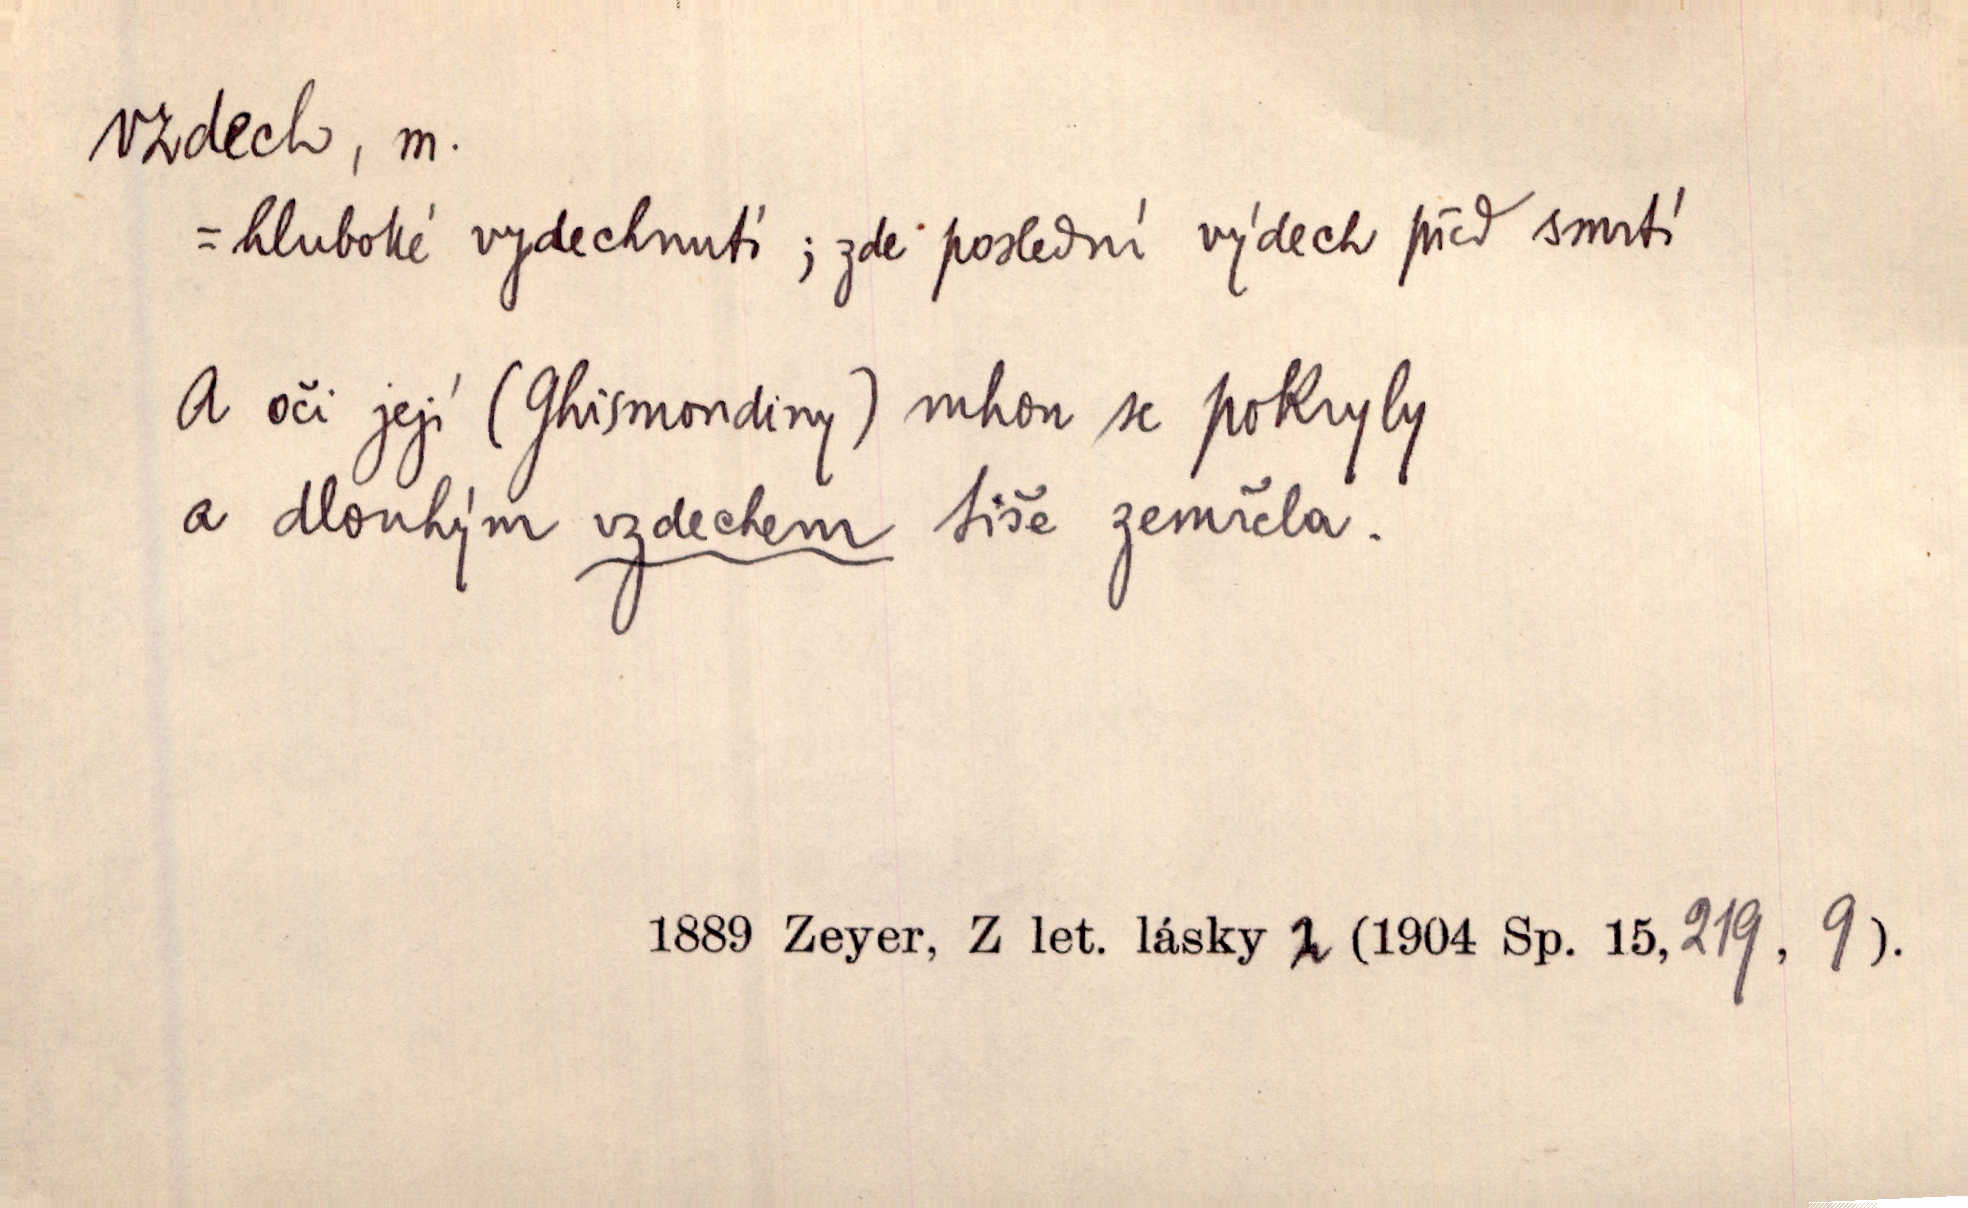 vzdech, m.
= hluboké vydechnutí ; zde poslední výdech před smrtí
A oči její (Ghismondiny) mhou se pokryly
a dlouhým vzdechem tiše zemřela.
1889 Zeyer, Z let. lásky 2 (1904 Sp. 15, 219, 9).